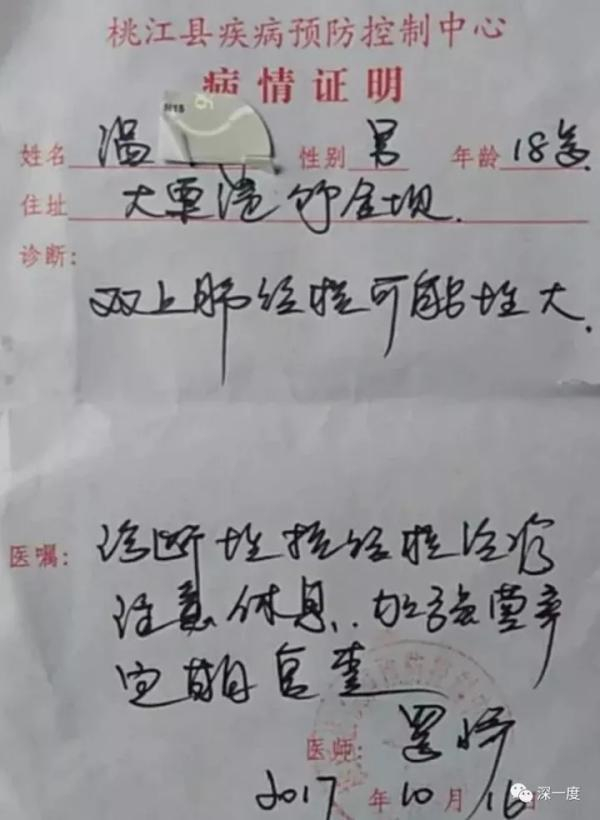 桃江县疾病预防控制中心
病情证明
姓名 温 性别 男 年龄 18岁
住址 大栗港
诊断:
双上肺结核可能性大.
医嘱: 诊断性抗结核治疗
注意休息. 加强营养
定期复查
医师:
2017年10月16日
深一度